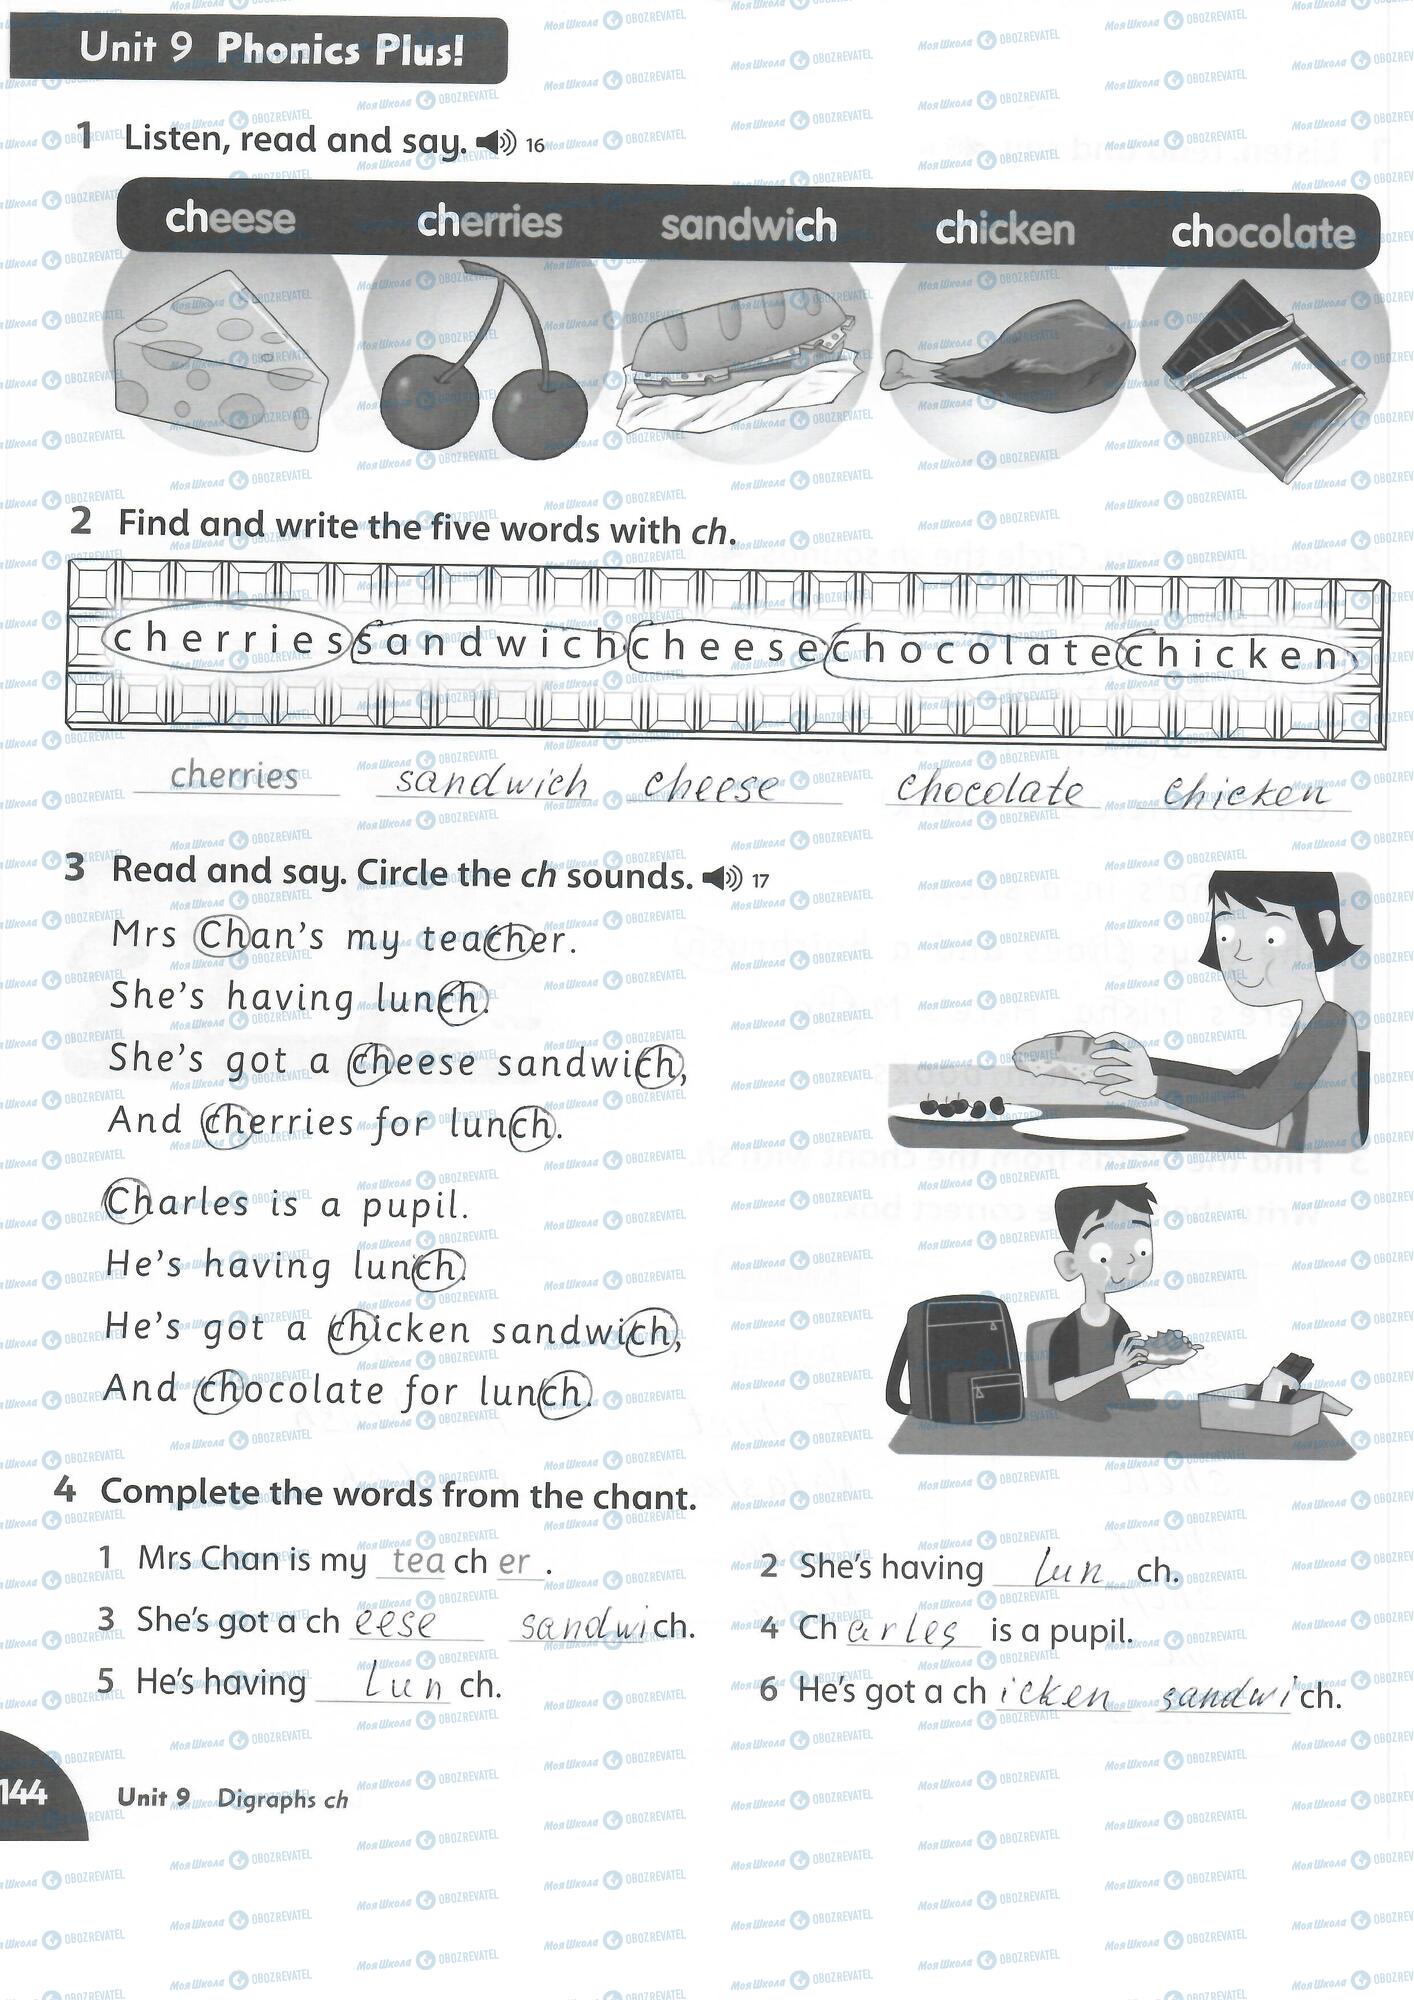 Unit 9 Phonics Plus!
1 Listen, read and say. 16
cheese cherries sandwich chicken chocolate
2 Find and write the five words with ch.
cherriessandwichcheesechocolatechicken
cherries sandwich cheese chocolate chicken
3 Read and say. Circle the ch sounds. 17
Mrs Chan's my teacher.
She's having lunch.
She's got a cheese sandwich,
And cherries for lunch.
Charles is a pupil.
He's having lunch.
He's got a chicken sandwich,
And chocolate for lunch.
4 Complete the words from the chant.
1 Mrs Chan is my tea ch er .
2 She's having lun ch.
3 She's got a ch eese sandwi ch.
4 Ch arles is a pupil.
5 He's having lun ch.
6 He's got a ch icken sandwi ch.
144 Unit 9 Digraphs ch
МояШкола OBOZREVATEL